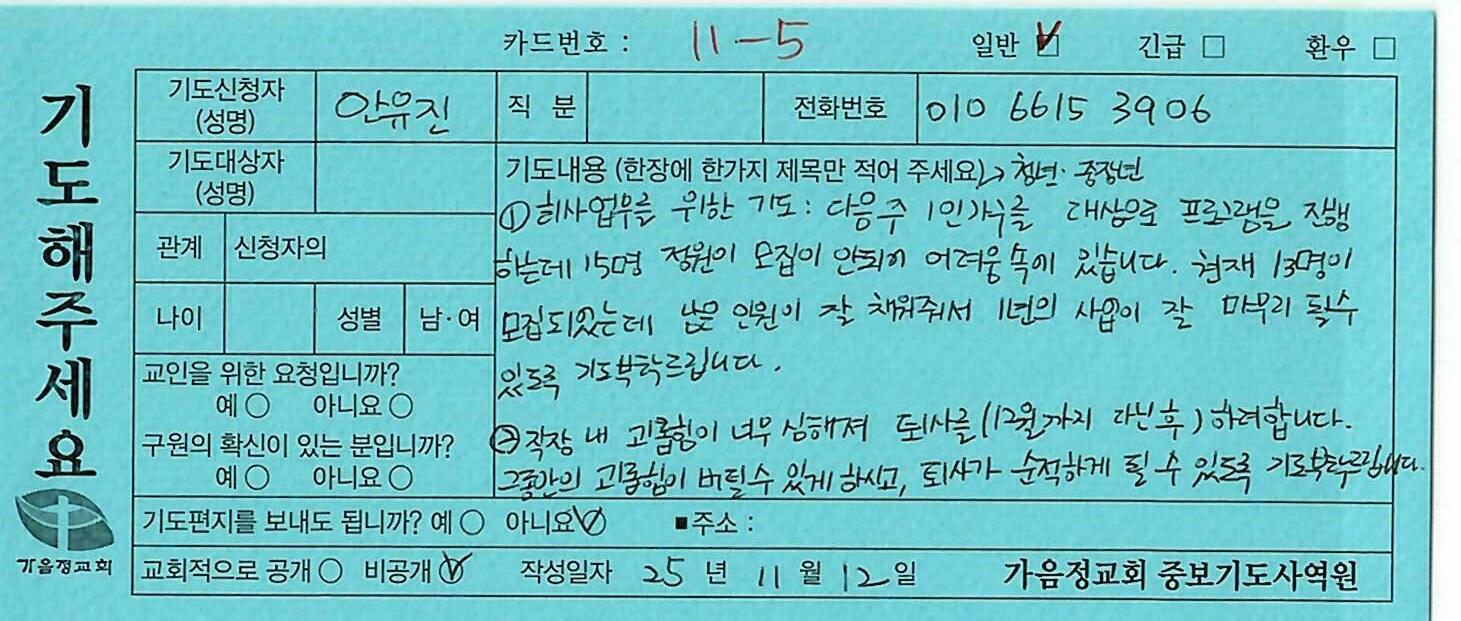 카드번호 : 11-5 일반 ☑ 긴급 □ 환우 □
기도해주세요
기도신청자 (성명) 안유진 직 분 전화번호 010 6615 3906
기도대상자 (성명)
기도내용 (한장에 한가지 제목만 적어 주세요) → 청년·중장년
① 회사업무를 위한 기도: 다음주 1인가구를 대상으로 프로그램을 진행
하는데 15명 정원이 모집이 안되어 어려움 속에 있습니다. 현재 13명이
모집되었는데 남은 인원이 잘 채워줘서 1년의 사업이 잘 마무리 될수
있도록 기도부탁드립니다.
② 직장 내 괴롭힘이 너무 심해져 퇴사를 (12월까지 다닌 후) 하려합니다.
그동안의 괴롭힘이 버틸수 있게 하시고, 퇴사가 순적하게 될 수 있도록 기도부탁드립니다.
관계 신청자의
나이 성별 남·여
교인을 위한 요청입니까?
예 ○ 아니요 ○
구원의 확신이 있는 분입니까?
예 ○ 아니요 ○
기도편지를 보내도 됩니까? 예 ○ 아니요 ☑ ■주소 :
교회적으로 공개 ○ 비공개 ☑ 작성일자 25 년 11 월 12 일 가음정교회 중보기도사역원
가음정교회